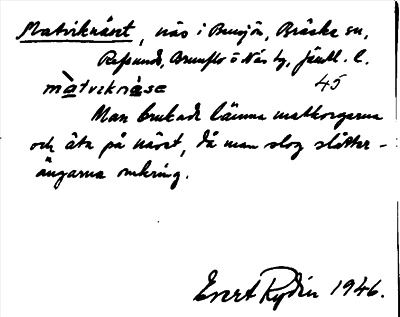 Matviknäset, näs i Bensjön, Bräcke sn,
Refsunds, Brunflo o Näs tg, Jämtl. l.
màtviknàse 45
Man brukade lämna matkorgarna
och äta på näset, då man slog slåtter-
ängarna omkring.
Evert Rydén 1946.